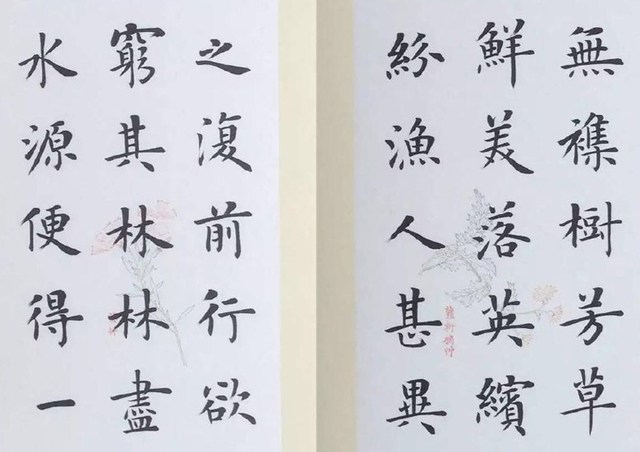 無襍樹芳草
鮮美落英繽
紛漁人甚異
之復前行欲
窮其林林盡
水源便得一